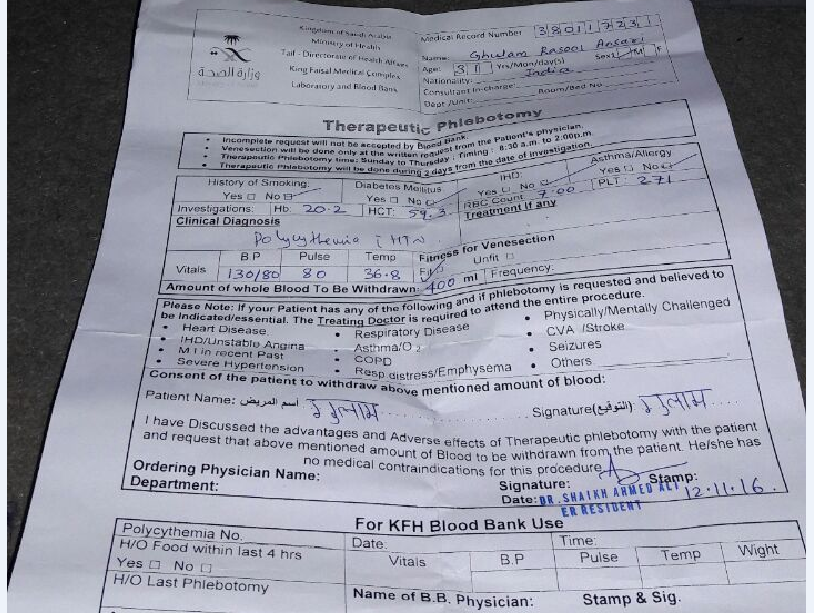 Kingdom of Saudi Arabia
Ministry of Health
Taif - Directorate of Health Affairs
King Faisal Medical Complex
Laboratory and Blood Bank
وزارة الصحة
Medical Record Number 38011231
Name: Ghulam Rasool Ansari
Age: 31 Yrs/Mon/day(s) Sex: M F
Nationality: India
Consultant In-charge:
Dept /Unit: Room/Bed No
Therapeutic Phlebotomy
• Incomplete request will not be accepted by Blood Bank.
• Venesection will be done only at the written request from the Patient's physician.
• Therapeutic Phlebotomy time: Sunday to Thursday : Timing : 8:30 a.m. to 2:00p.m.
• Therapeutic Phlebotomy will be done during 2 days from the date of investigation.
History of Smoking: Diabetes Mollitus IHD: Asthma/Allergy
Yes □ No □ Yes □ No □ Yes □ No □ Yes □ No □
Investigations: Hb: 20.2 HCT: 59.3 RBC Count 7.00 PLT: 271
Clinical Diagnosis Treatment if any
Polycythemia c̄ HTN
B.P Pulse Temp Fitness for Venesection
Vitals 130/80 80 36.8 Fit Unfit □
Amount of whole Blood To Be Withdrawn: 400 ml Frequency:
Please Note: If your Patient has any of the following and if phlebotomy is requested and believed to
be Indicated/essential. The Treating Doctor is required to attend the entire procedure.
• Heart Disease • Respiratory Disease • Physically/Mentally Challenged
• IHD/Unstable Angina • Asthma/O2 • CVA /Stroke
• M I in recent Past • COPD • Seizures
• Severe Hypertension • Resp distress/Emphysema • Others
Consent of the patient to withdraw above mentioned amount of blood:
Patient Name: اسم المريض गुलाम Signature(التوقيع) गुलाम
I have Discussed the advantages and Adverse effects of Therapeutic phlebotomy with the patient
and request that above mentioned amount of Blood to be withdrawn from the patient. He/she has
no medical contraindications for this procedure
Ordering Physician Name: Signature: Stamp:
Department: Date: DR. SHAIKH AHMED ALI 12.11.16.
ER RESIDENT
For KFH Blood Bank Use
Polycythemia No. Date: Time:
H/O Food within last 4 hrs Vitals B.P Pulse Temp Wight
Yes □ No □
H/O Last Phlebotomy Name of B.B. Physician: Stamp & Sig.